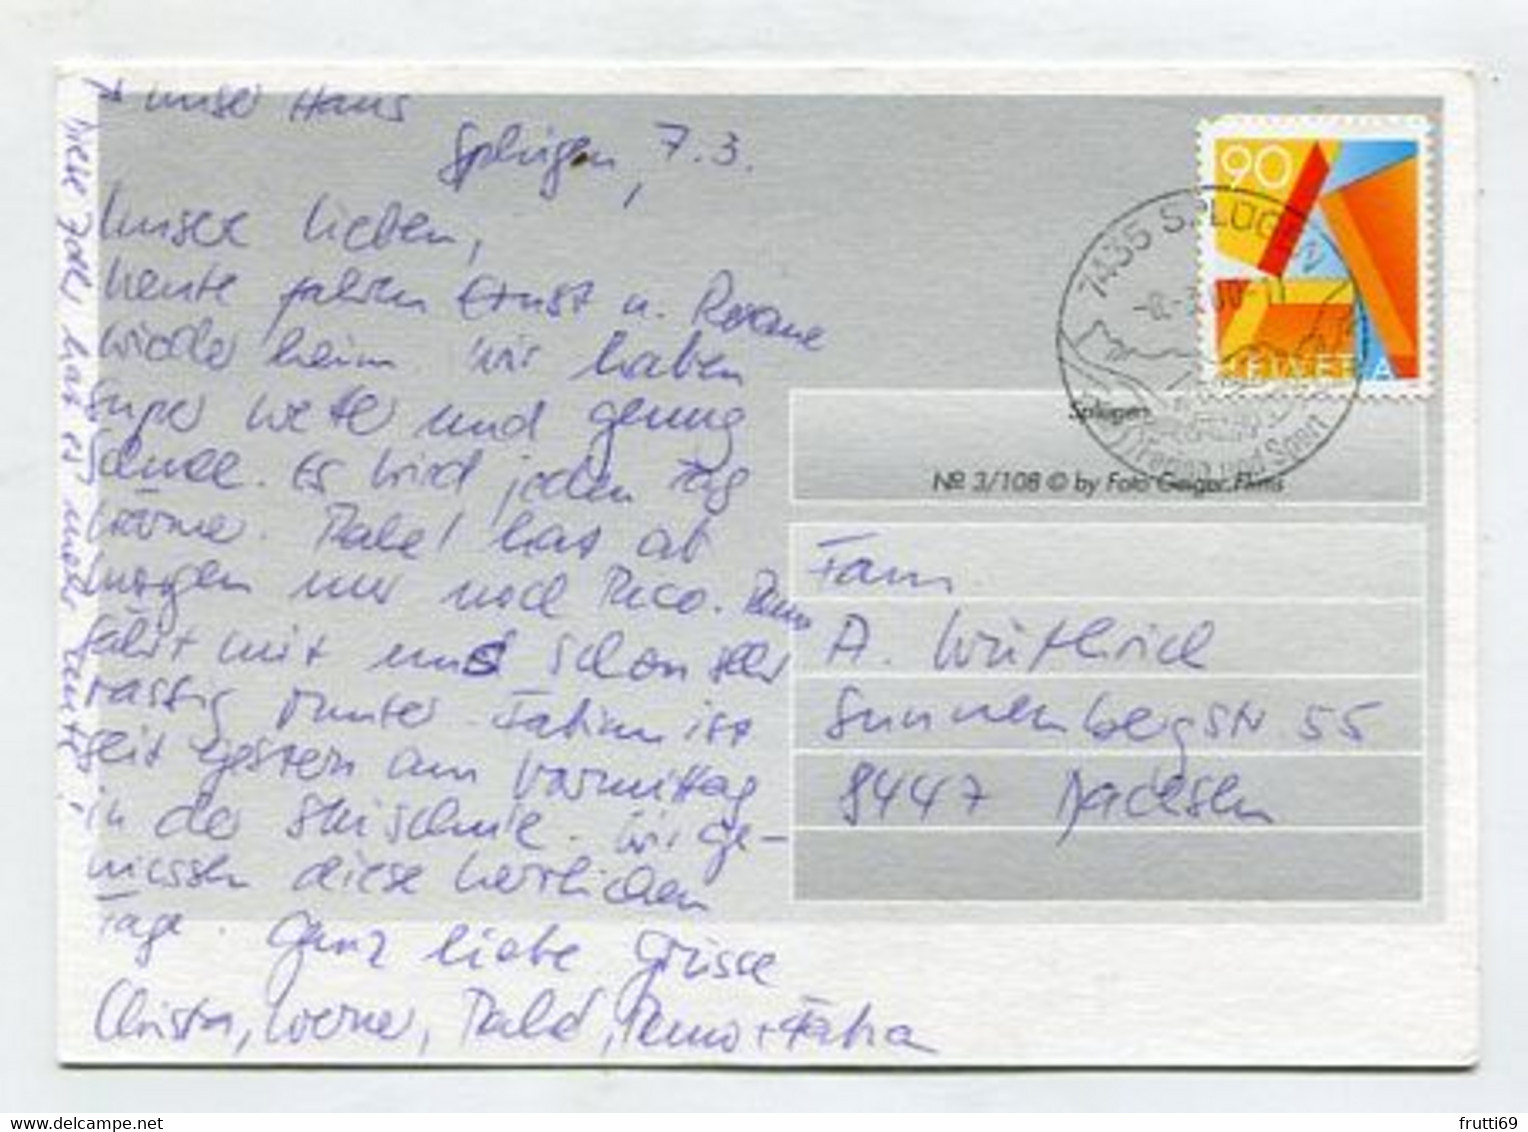 → unser Haus
Splügen, 7.3.
Unsere Lieben,
heute fahren Ernst u.
wieder heim. Wir haben
super Wetter und genug
Schnee. Es wird jeden Tag
wärmer. hat ab
morgen nur noch Rico. Remo
fährt mit uns schon sehr
rassig runter. ist
seit gestern am Vormittag
in der Skischule. Wir ge-
niessen diese herrlichen
Tage. Ganz liebe Grüsse
Christa, Werner, Remo +
hat es mehr
90
HELVETIA
7435 SPLÜGEN
Ferien und Sport
Splügen
Nº 3/108 © by Foto Geiger Flims
Fam.
A. Wüthrich
Sunnenbergstr. 55
8447 Dachsen
frutti69